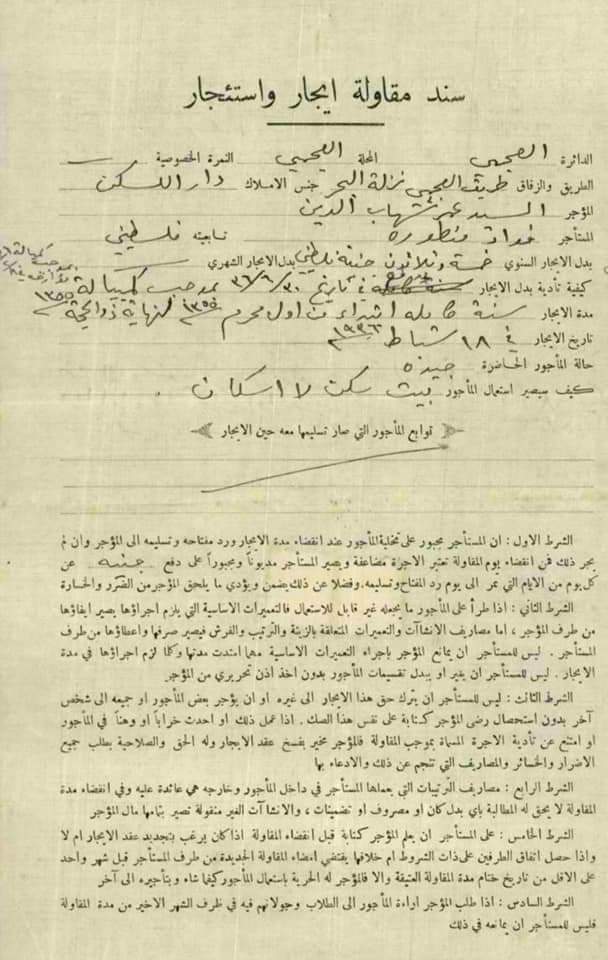 سند مقاولة ايجار واستئجار
الدائرة العجمي المحلة العجمي النمرة الخصوصية
الطريق والزقاق طريق العجمي نزلة البحر جنس الاملاك دار للسكن
المؤجر السيد عمر شهاب الدين
المستأجر فؤاد منظوره تابعيته فلسطيني
بدل الايجار السنوي خمسة وثلاثون جنيه فلسطيني بدل الايجار الشهري
كيفية تأدية بدل الايجار في تاريخ ٣٠/٦/٣٦ بموجب كمبيالة
مدة الايجار سنة كامله ابتداء من اول محرم ١٣٥٥ لنهاية ذو الحجة ١٣٥٥
تاريخ الايجار في ١٨ شباط ١٩٣٦
حالة المأجور الحاضرة جيده
كيف سيصير استعمال المأجور بيت سكن لا اسكان
توابع المأجور التي صار تسليمها معه حين الايجار
الشرط الاول : ان المستأجر مجبور على تخلية المأجور عند انقضاء مدة الايجار ورد مفتاحه وتسليمه الى المؤجر وان لم
يجر ذلك فمن انقضاء يوم المقاولة تعتبر الاجرة مضاعفة ويصير المستأجر مديوناً ومجبوراً على دفع جنيه عن
كل يوم من الايام التي تمر الى يوم رد المفتاح وتسليمه وفضلا عن ذلك يضمن ويؤدي ما يلحق المؤجر من الضرر والخسارة
الشرط الثاني : اذا طرأ على المأجور ما يجعله غير قابل للاستعمال فالتعميرات الاساسية التي يلزم اجراؤها يصير ايفاؤها
من طرف المؤجر ، اما مصاريف الانشاآت والتعميرات المتعلقة بالزينة والترتيب والفرش فيصير صرفها واعطاؤها من طرف
المستأجر . ليس للمستأجر ان يمانع المؤجر باجراء التعميرات الاساسية مهما امتدت مدتها وكلما لزم اجراؤها في مدة
الايجار . ليس للمستأجر ان يغير او يبدل تقسيمات المأجور بدون اخذ اذن تحريري من المؤجر
الشرط الثالث : ليس للمستأجر ان يترك حق هذا الايجار الى غيره او ان يؤجر بعض المأجور او جميعه الى شخص
آخر بدون استحصال رضى المؤجر كتابة على نفس هذا الصك . اذا عمل ذلك او احدث خراباً او وهناً في المأجور
او امتنع عن تأدية الاجرة المسماة بموجب المقاولة فالمؤجر مخير بفسخ عقد الايجار وله الحق والصلاحية بطلب جميع
الاضرار والخسائر والمصاريف التي تنجم عن ذلك والادعاء بها
الشرط الرابع : مصاريف الترتيبات التي يعملها المستأجر في داخل المأجور وخارجه هي عائدة عليه وفي انقضاء مدة
المقاولة لا يحق له المطالبة باي بدل كان او مصروف او تضمينات ، والانشاآت الغير منقولة تصير بتمامها مال المؤجر
الشرط الخامس : على المستأجر ان يعلم المؤجر كتابة قبل انقضاء المقاولة اذا كان يرغب بتجديد عقد الايجار ام لا
واذا حصل اتفاق الطرفين على ذات الشروط ام خلافها يقتضي امضاء المقاولة الجديدة من طرف المستأجر قبل شهر واحد
على الاقل من تاريخ ختام مدة المقاولة العتيقة والا فالمؤجر له الحرية باستعمال المأجور كيفما شاء وبتأجيره الى آخر
الشرط السادس : اذا طلب المؤجر اراءة المأجور الى الطلاب وجولانهم فيه في ظرف الشهر الاخير من مدة المقاولة
فليس للمستأجر ان يمانعه في ذلك